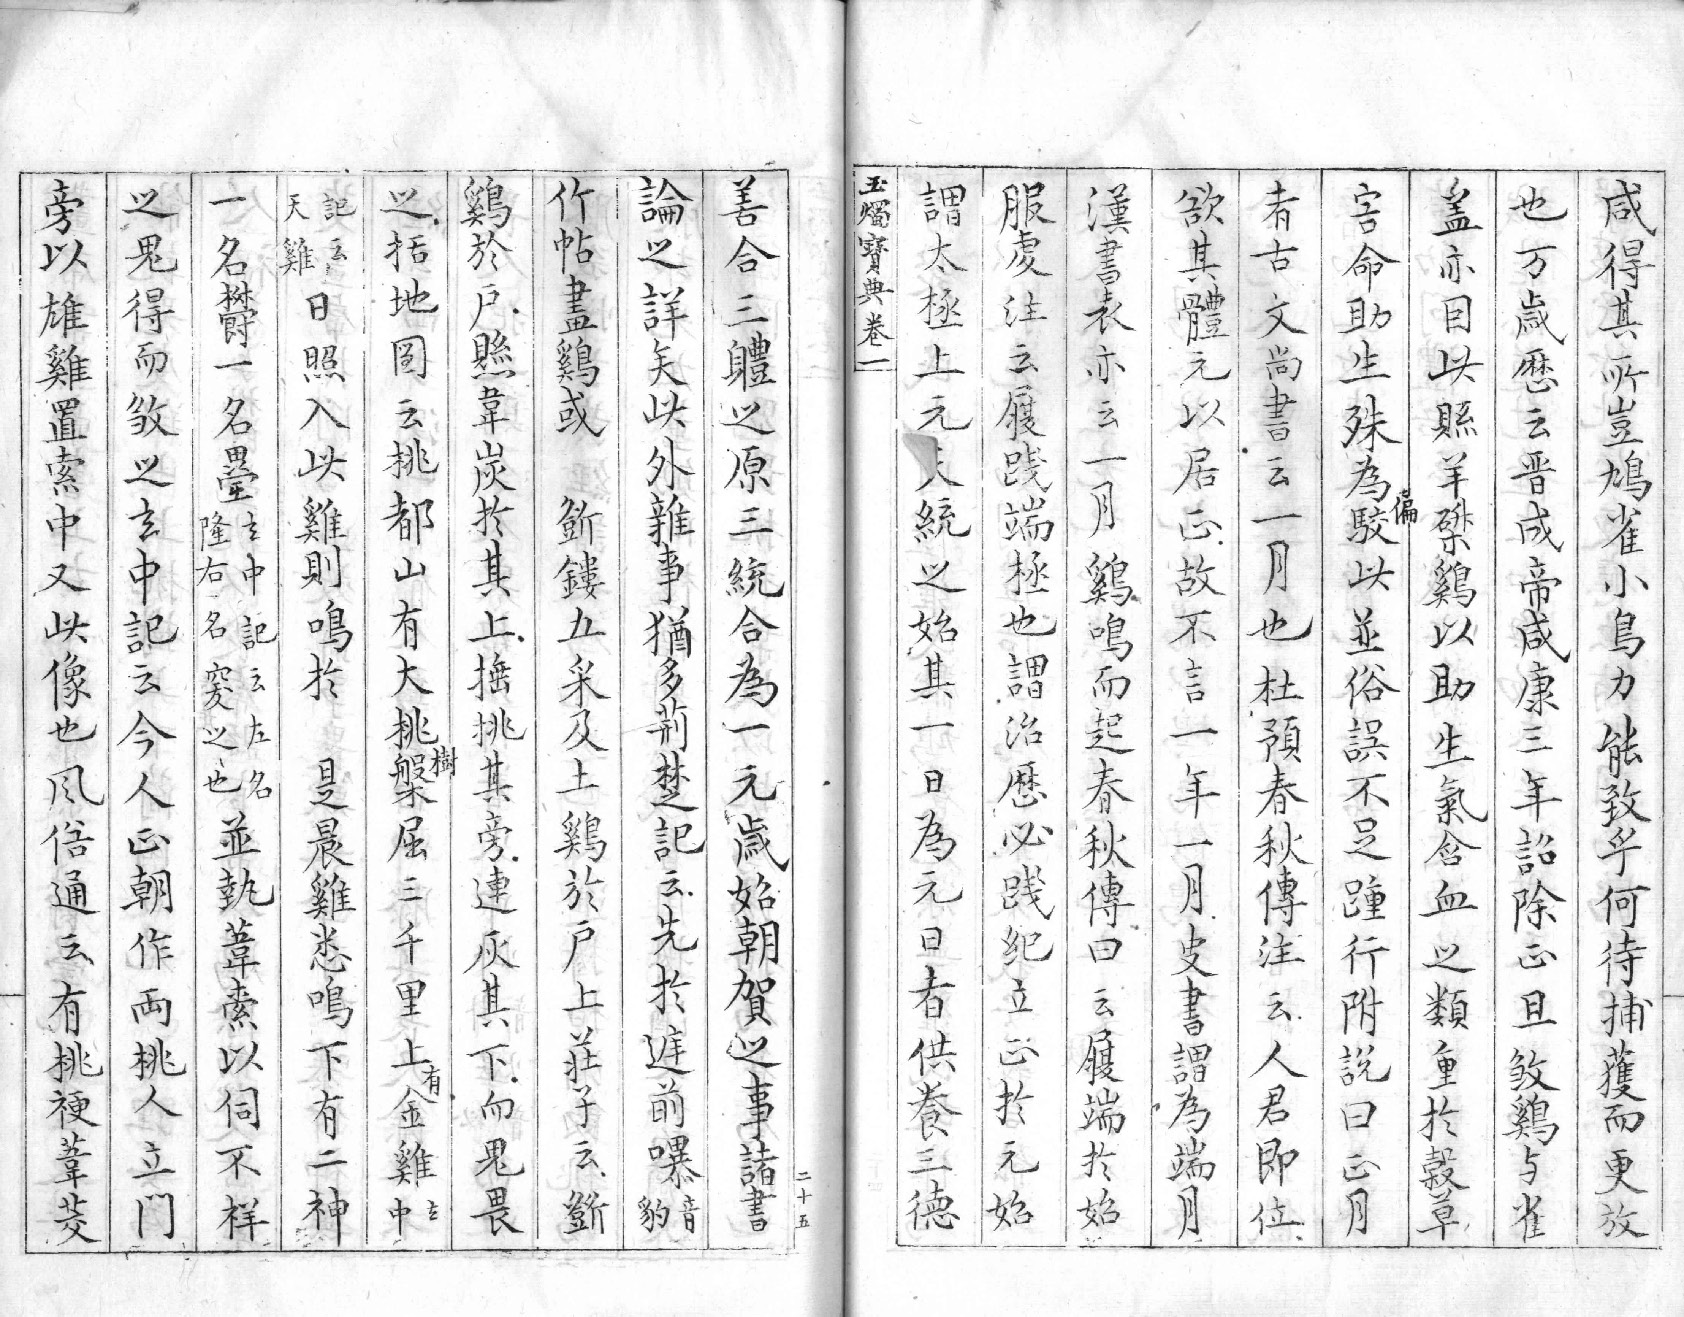 咸得其所豈鳩雀小鳥力能致乎何待捕獲而更放
也万歲歷云晋成帝咸康三年詔除正旦煞鷄与雀
盖亦目此縣羊磔鷄以助生氣含血之類重於穀草
害命助生殊為駮此並俗誤不足踵行附説曰正月
偏
者古文尚書云一月也杜預春秋傳注云人君即位
欲其體元以居正故不言一年一月史書謂為端月
漢書表亦云一月鷄鳴而起春秋傳曰云履端於始
服虔注云履踐端極也謂治歷必踐紀立正於元始
謂太極上元天統之始其一日為元日者供養三德
玉燭寶典卷一
二十五
善合三體之原三統合為一元歲始朝賀之事諸書
論之詳矣此外雜事猶多荊楚記云先於庭前爆音豹
竹帖畫鷄或 斵鏤五采及土鷄於戶上莊子云斵
鷄於戶懸葦炭於其上插桃其旁連灰其下而鬼畏
之括地圖云桃都山有大桃槃屈三千里上金雞玄中
樹
有
記云天雞日照入此雞則鳴於 是晨雞悉鳴下有二神
一名欝一名壘玄中記云左名隆右名窫之也並執葦索以伺不祥
之鬼得而煞之玄中記云今人正朝作兩桃人立門
旁以雄雞置索中又此像也風俗通云有桃梗葦茭